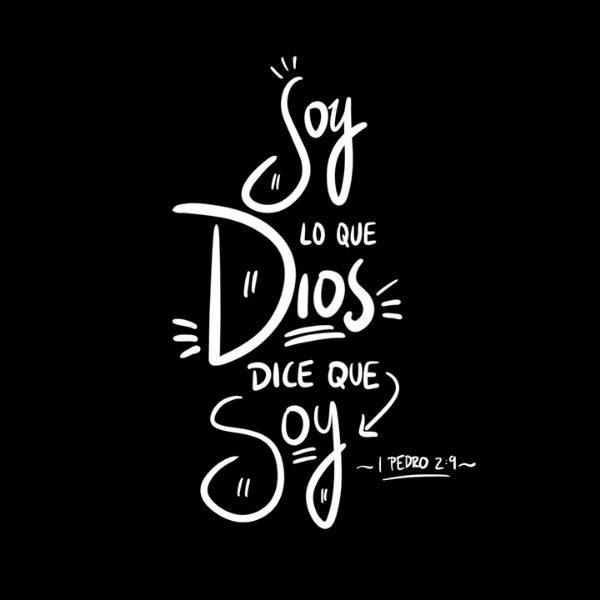 Soy
LO QUE
DIOS
DICE QUE
Soy
~1 PEDRO 2:9~